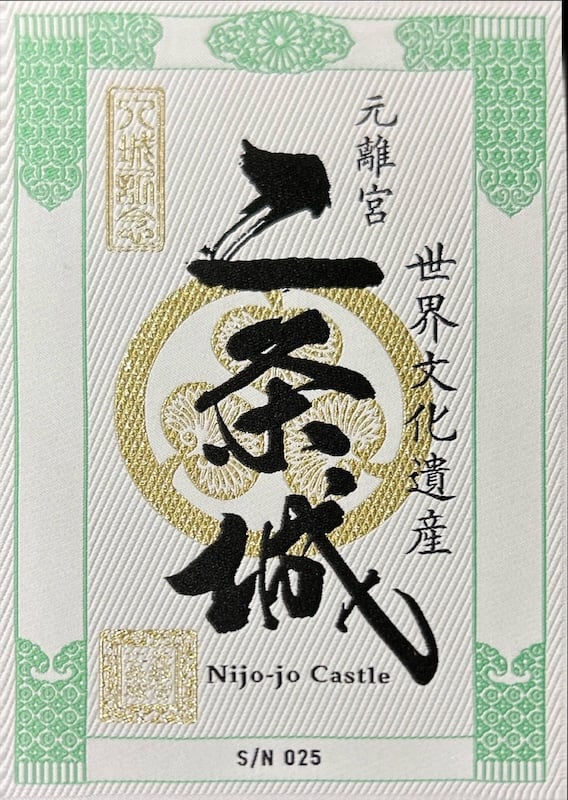 世界文化遺産
元離宮
二条城
入城記念
Nijo-jo Castle
S/N 025